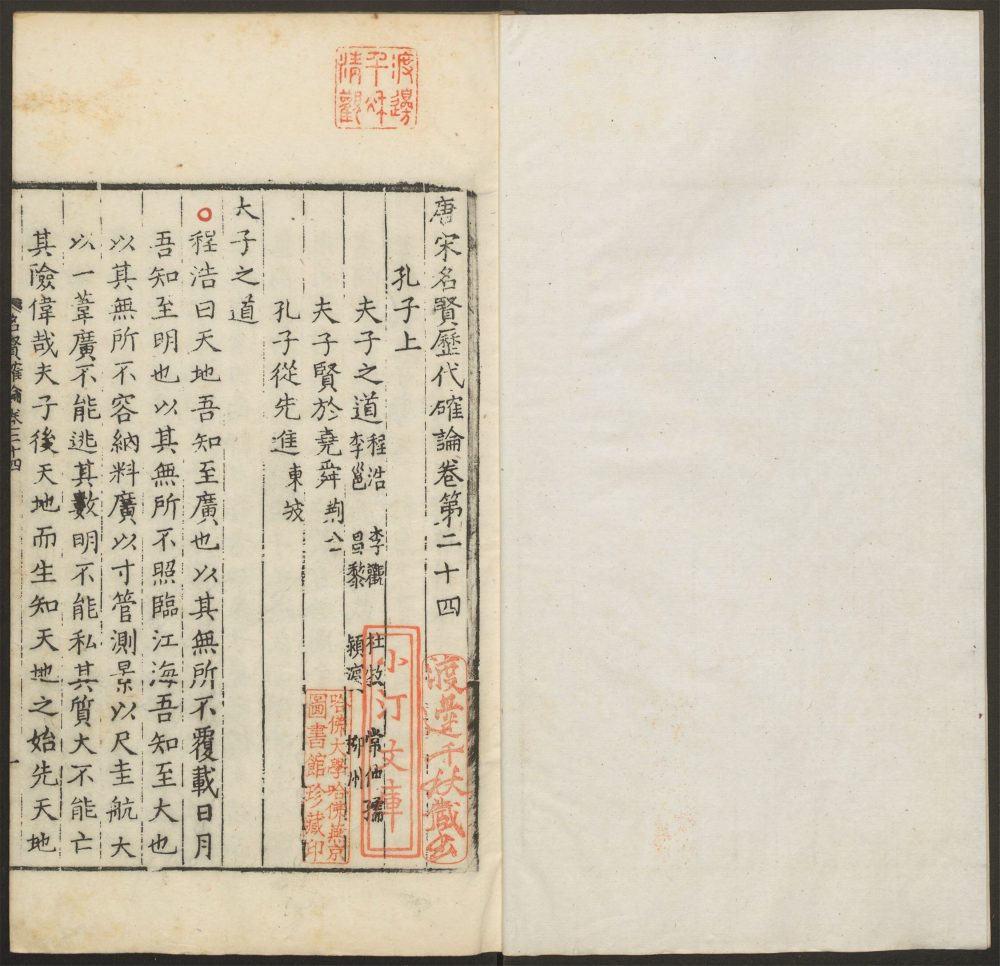 渡邊
千秌
清觀
唐宋名賢歷代確論卷第二十四
孔子上
夫子之道 程浩 李觀 杜牧 常仲孺
李邕 昌黎 穎濱 柳州
夫子賢於堯舜 荆公
孔子從先進 東坡
大子之道
○程浩曰天地吾知至廣也以其無所不覆載日月
吾知至明也以其無所不照臨江海吾知至大也
以其無所不容納料廣以寸管測景以尺圭航大
以一葦廣不能逃其數明不能私其質大不能亡
其險偉哉夫子後天地而生知天地之始先天地
名賢確論卷二十四
一
渡邊千秋藏書
小汀文庫
哈佛大學哈佛燕京
圖書館珍藏印